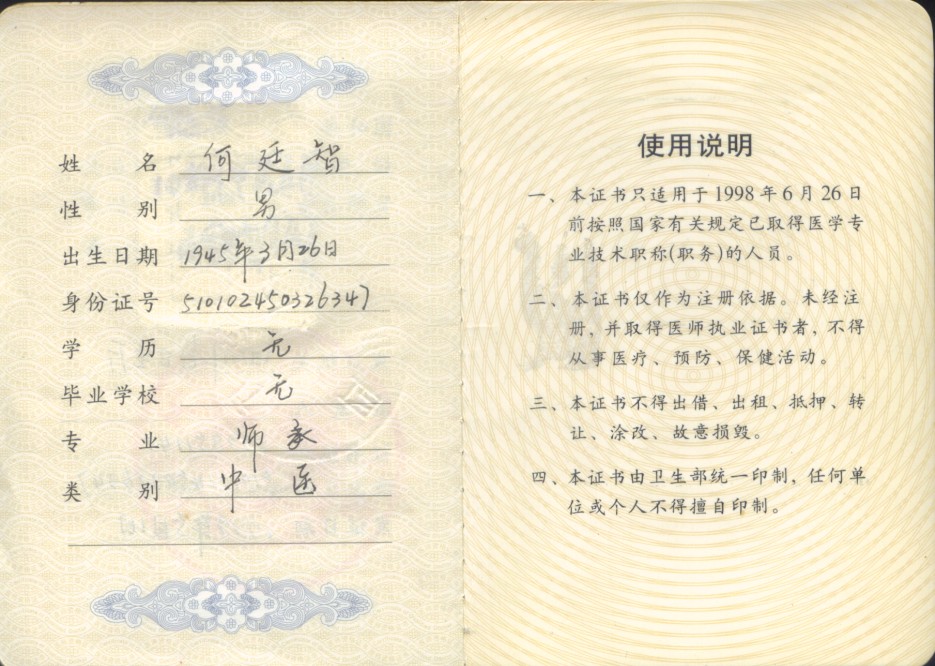 姓名 何廷智
性别 男
出生日期 1945年3月26日
身份证号 510102450326347
学历 无
毕业学校 无
专业 师承
类别 中医
使用说明
一、本证书只适用于1998年6月26日
前按照国家有关规定已取得医学专
业技术职称(职务)的人员。
二、本证书仅作为注册依据。未经注
册,并取得医师执业证书者,不得
从事医疗、预防、保健活动。
三、本证书不得出借、出租、抵押、转
让、涂改、故意损毁。
四、本证书由卫生部统一印制,任何单
位或个人不得擅自印制。